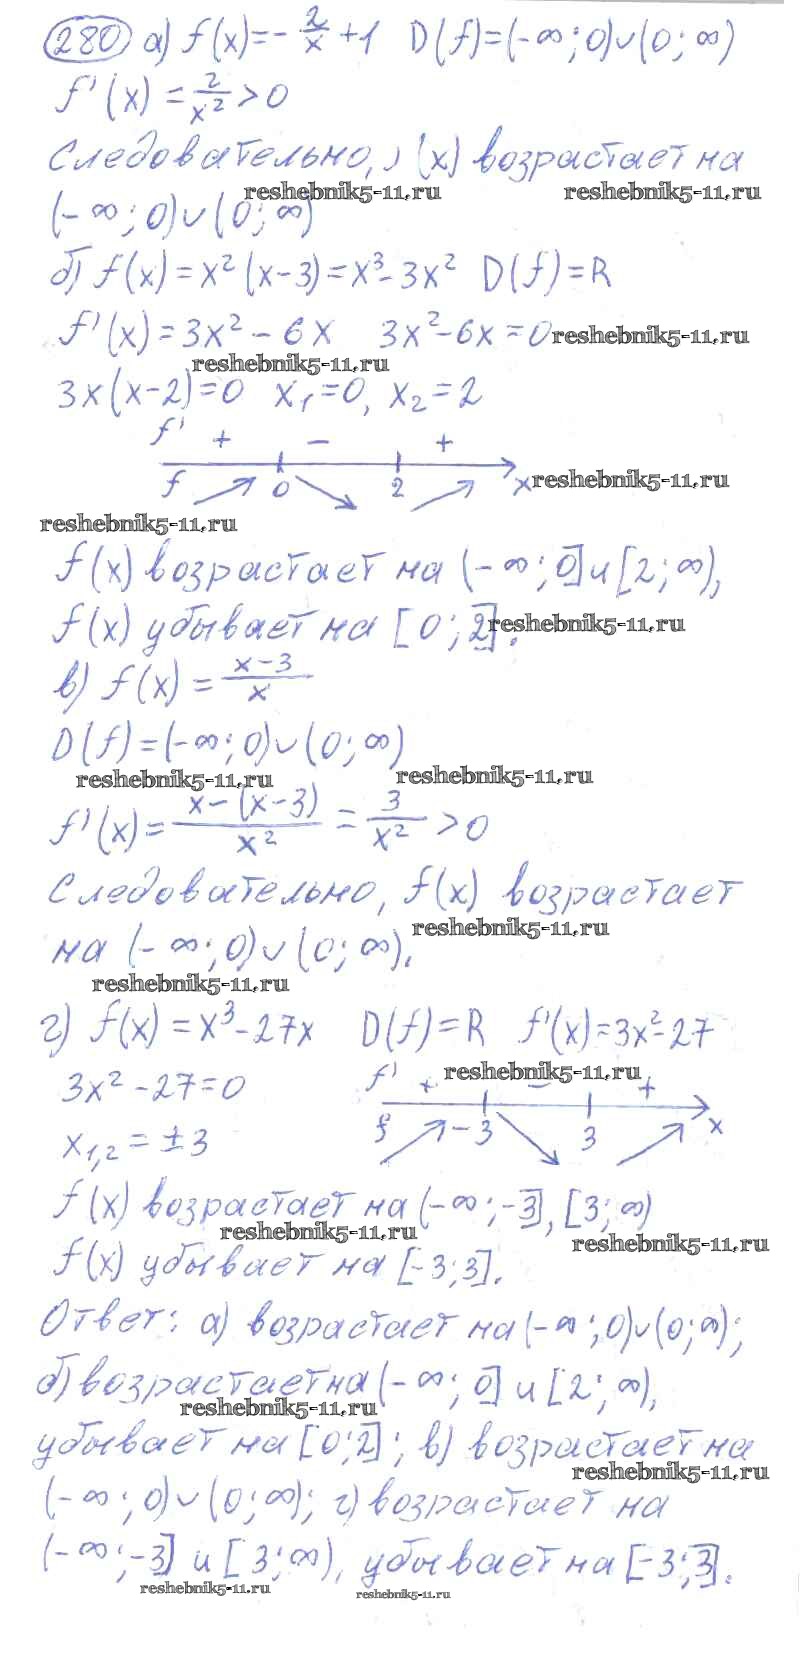 280 а) f(x) = -2/x + 1 D(f) = (-∞; 0)∪(0; ∞)
f'(x) = 2/x² > 0
Следовательно, f(x) возрастает на
reshebnik5-11.ru reshebnik5-11.ru
(-∞; 0)∪(0; ∞)
б) f(x) = x²(x-3) = x³-3x² D(f) = R
f'(x) = 3x² - 6x 3x²-6x = 0 reshebnik5-11.ru
reshebnik5-11.ru
3x(x-2) = 0 x₁ = 0, x₂ = 2
f' + - +
f 0 2 x reshebnik5-11.ru
reshebnik5-11.ru
f(x) возрастает на (-∞; 0] и [2; ∞),
f(x) убывает на [0; 2]. reshebnik5-11.ru
в) f(x) = (x-3)/x
D(f) = (-∞; 0)∪(0; ∞)
reshebnik5-11.ru reshebnik5-11.ru
f'(x) = (x-(x-3))/x² = 3/x² > 0
Следовательно, f(x) возрастает
reshebnik5-11.ru
на (-∞; 0)∪(0; ∞).
reshebnik5-11.ru
г) f(x) = x³-27x D(f) = R f'(x) = 3x²-27
3x² - 27 = 0 f' + - + reshebnik5-11.ru
x₁,₂ = ±3 f -3 3 x
f(x) возрастает на (-∞; -3], [3; ∞)
reshebnik5-11.ru reshebnik5-11.ru
f(x) убывает на [-3; 3].
Ответ: а) возрастает на (-∞; 0)∪(0; ∞);
б) возрастает на (-∞; 0] и [2; ∞),
reshebnik5-11.ru
убывает на [0; 2]; в) возрастает на
reshebnik5-11.ru
(-∞; 0)∪(0; ∞); г) возрастает на
(-∞; -3] и [3; ∞), убывает на [-3; 3].
reshebnik5-11.ru reshebnik5-11.ru